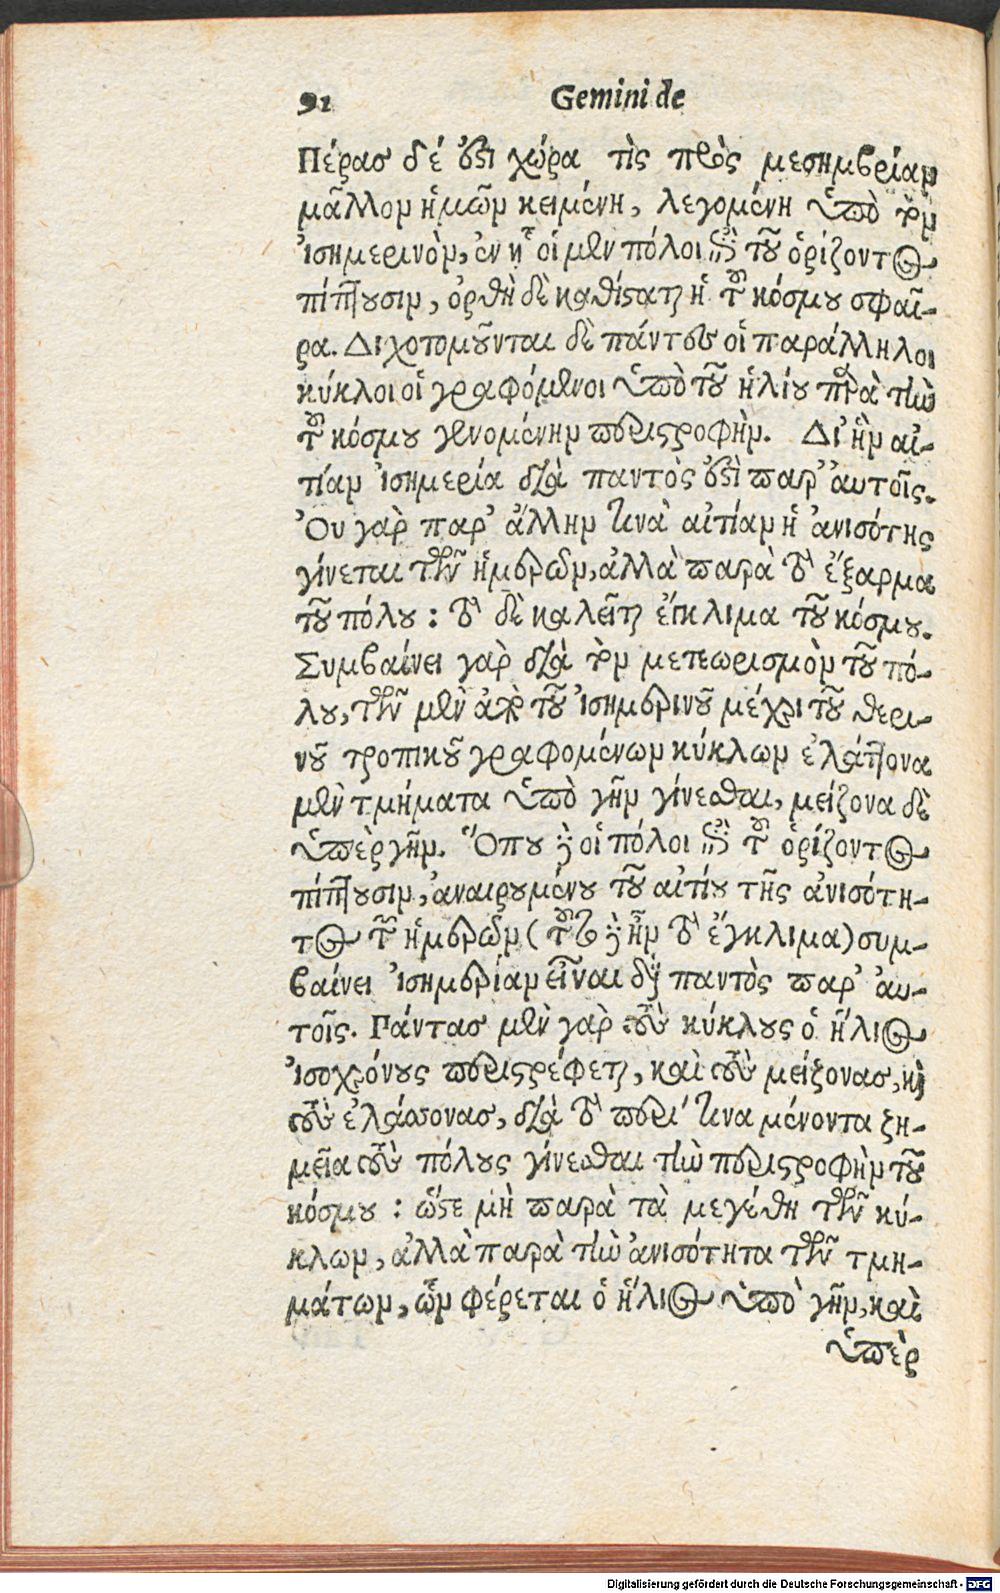 91 Gemini de
Πέρας δέ ἐστι χώρα τὶς πρὸς μεσημβρίαν
μᾶλλον ἡμῶν κειμένη, λεγομένη ὑπὸ τὸν
ἰσημερινὸν, ἐν ᾗ οἱ μὲν πόλοι ὑπὸ τοῦ ὁρίζοντος
πίπτουσιν, ὀρθὴ δὲ καθίσταται ἡ τοῦ κόσμου σφαῖ-
ρα. Διχοτομοῦνται δὲ πάντες οἱ παράλληλοι
κύκλοι οἱ γραφόμενοι ὑπὸ τοῦ ἡλίου παρὰ τὴν
τοῦ κόσμου γενομένην περιστροφὴν. Δι' ἣν αἰ-
τίαν ἰσημερία διὰ παντὸς ἐστὶ παρ' αὐτοῖς.
Ὀυ γὰρ παρ' ἄλλην τινὰ αἰτίαν ἡ ἀνισότης
γίνεται τῶν ἡμερῶν, ἀλλὰ παρὰ τὸ ἔξαρμα
τοῦ πόλου: τὸ δὲ καλεῖται ἔγκλιμα τοῦ κόσμου.
Συμβαίνει γὰρ διὰ τὸν μετεωρισμὸν τοῦ πό-
λου, τῶν μὲν ἀπὸ τοῦ ἰσημερινοῦ μέχρι τοῦ θερι-
νοῦ τροπικοῦ γραφομένων κύκλων ἐλάττονα
μὲν τμήματα ὑπὸ γῆν γίνεσθαι, μείζονα δὲ
ὑπὲρ γῆν. Ὅπου γὰρ οἱ πόλοι ὑπὸ τοῦ ὁρίζοντος
πίπτουσιν, ἀναιρουμένου τοῦ αἰτίου τῆς ἀνισότη-
τος τῶν ἡμερῶν (τοῦτο γὰρ ἦν τὸ ἔγκλιμα) συμ-
βαίνει ἰσημερίαν εἶναι διὰ παντὸς παρ' αὐ-
τοῖς. Πάντας μὲν γὰρ τοὺς κύκλους ὁ ἥλιος
ἰσοχρόνους περιστρέφεται, καὶ τοὺς μείζονας, καὶ
τοὺς ἐλάσσονας, διὰ τὸ περί τινα μένοντα ση-
μεῖα τοὺς πόλους γίνεσθαι τὴν περιστροφὴν τοῦ
κόσμου: ὥστε μὴ παρὰ τὰ μεγέθη τῶν κύ-
κλων, ἀλλὰ παρὰ τὴν ἀνισότητα τῶν τμη-
μάτων, ὧν φέρεται ὁ ἥλιος ὑπὸ γῆν, καὶ
ὑπὲρ
Digitalisierung gefördert durch die Deutsche Forschungsgemeinschaft - DFG